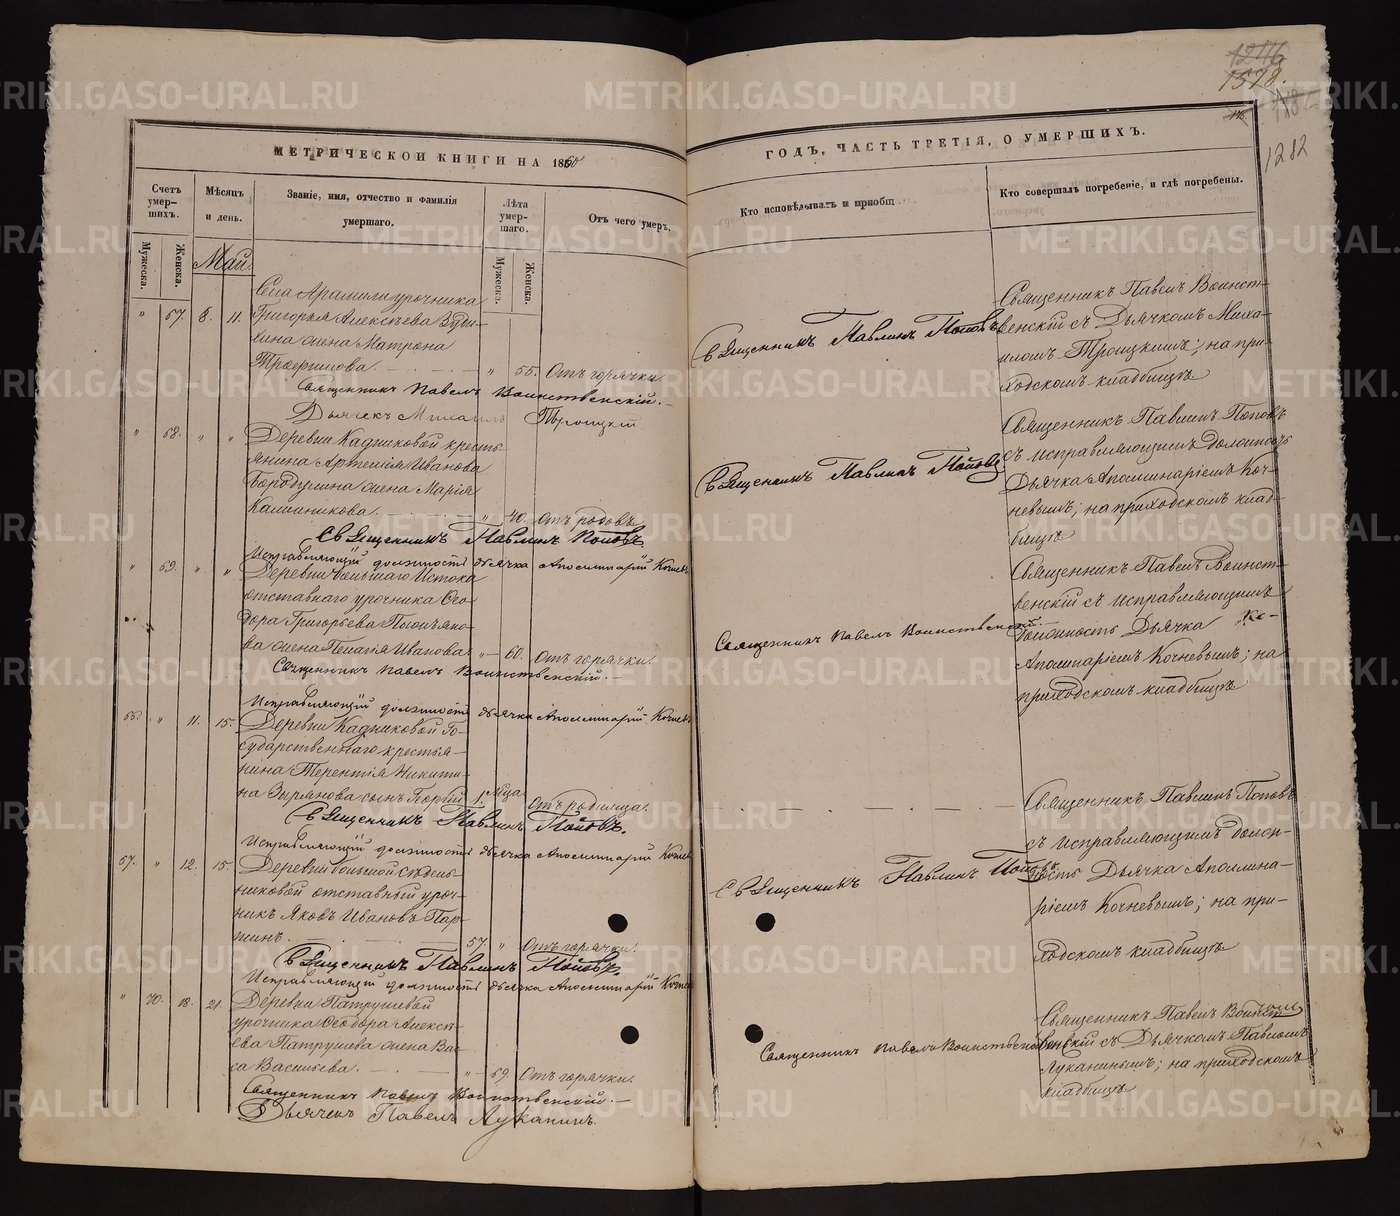 1246
1578.
1282
МЕТРИЧЕСКОЙ КНИГИ НА 1860
ГОДЪ, ЧАСТЬ ТРЕТІЯ, О УМЕРШИХЪ.
Счетъ умер-шихъ.
Мѣсяцъ и день.
Званіе, имя, отчество и фамилія умершаго.
Лѣта умер-шаго.
Отъ чего умеръ.
Кто исповѣдывалъ и пріобщ.
Кто совершалъ погребеніе, и гдѣ погребены.
Мужеска.
Женска.
Май.
Мужеска.
Женска.
Села Арамили урочника
" 67. 8. 11. Григорья Алексѣева
жена Матрона
Трофимова. " 55. Отъ горячки.
Священникъ Павелъ Воинственскій.
Дьячекъ Михаилъ Троицкій.
Священникъ Павлинъ Поповъ
Священникъ Павелъ Воинст-
венскій съ Дьячкомъ Миха-
иломъ Троицкимъ; на при-
ходскомъ кладбищѣ
" 68. " " Деревни Кадниковой кресть-
янина Артемія Иванова
Бородулина жена Марія
Калинникова. " 40. Отъ родовъ
Священникъ Павлинъ Поповъ
Исправляющій должность дьячка Аполлинарій Кочневъ
Священникъ Павлинъ Поповъ
Священникъ Павлинъ Поповъ
съ исправляющимъ должность
Дьячка Аполлинаріемъ Коч-
невымъ; на приходскомъ клад-
бищѣ
" 69. " " Деревни большаго Истока
отставнаго урочника Ѳео-
дора Григорьева
жена Пелагія Иванова " 60. Отъ горячки.
Священникъ Павелъ Воинственскій.
Исправляющій должность дьячка Аполлинарій Кочневъ
Священникъ Павелъ Воинственскій.
Священникъ Павелъ Воинст-
венскій съ исправляющимъ
должность Дьячка
Аполинаріемъ Кочневымъ; на
приходскомъ кладбищѣ
" 11. 15. Деревни Кадниковой Го-
сударственнаго крестья-
нина Терентія Никити-
на Зырянова сынъ Георгій 1. мѣца Отъ родимца.
Священникъ Павлинъ Поповъ.
Исправляющій должность дьячка Аполлинарій Кочневъ
Священникъ Павлинъ Поповъ
съ исправляющимъ долж-
ность Дьячка Аполлина-
ріемъ Кочневымъ; на при-
ходскомъ кладбищѣ
67. " 12. 15. Деревни большой Сѣдель-
никовой отставный уроч-
никъ Яковъ Ивановъ Пар-
шинъ. 57. " Отъ горячки.
Священникъ Павлинъ Поповъ
Исправляющій должность дьячка Аполлинарій Кочневъ
Священникъ Павлинъ Поповъ
" 70. 18. 21. Деревни Патрушевой
урочника Ѳеодора Алексѣ-
ева Патрушева жена Вас-
са Васильева. " 69. Отъ горячки.
Священникъ Павелъ Воинственскій.
Дьячекъ Павелъ Луканинъ.
Священникъ Павелъ Воинственскій
Священникъ Павелъ Воинст-
венскій съ Дьячкомъ Павломъ
Луканинымъ; на приходскомъ
кладбищѣ
METRIKI.GASO-URAL.RU